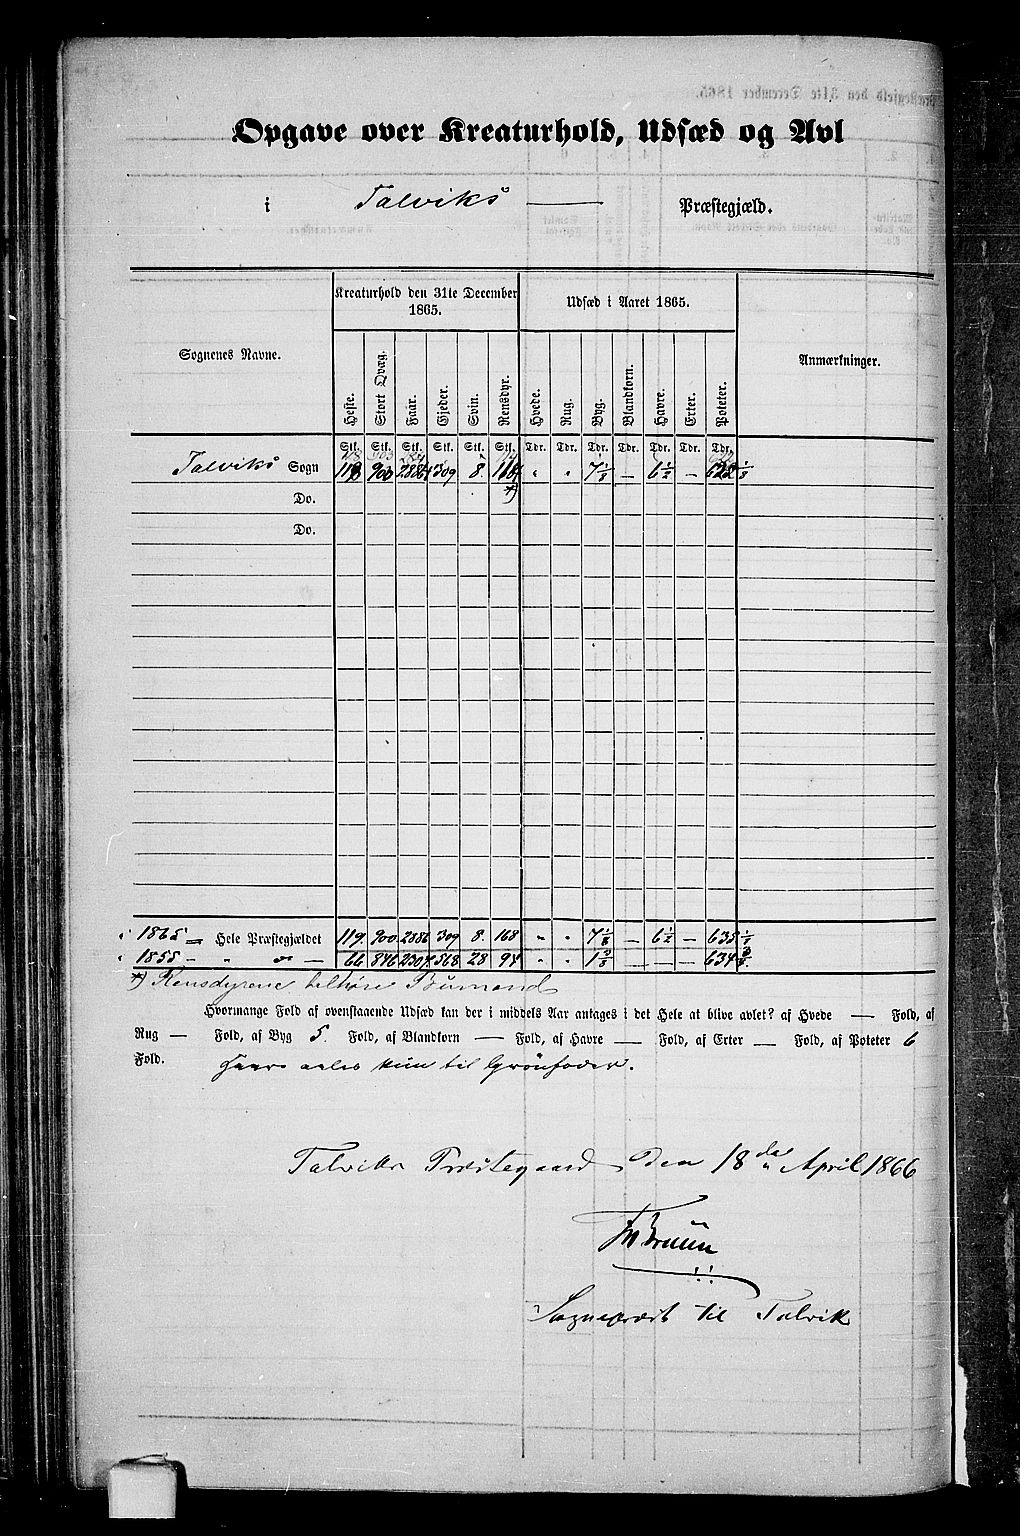 Opgave over Kreaturhold, Udsæd og Avl
i Talviks Præstegjæld.
Sognenes Navne. Kreaturhold den 31te December 1865. Udsæd i Aaret 1865. Anmærkninger.
Heste. Stort Qvæg. Faar. Gjeder. Svin. Rensdyr. Hvede. Rug. Byg. Blandkorn. Havre. Erter. Poteter.
Stk. Stk. Stk. Stk. Stk. Stk. Tdr. Tdr. Tdr. Tdr. Tdr. Tdr. Tdr.
Talviks Sogn 900 309 8. " " — 6 1/2 —
*)
Do.
Do.
i 1865 = Hele Præstegjældet 119. 900. 2886 309 8. 168 " " 7 1/8 — 6 1/2 — 635 1/8
" 1855 – " " – 66 846 2304 568 28 94 " " 1 3/8 — — — 634 3/8.
*) Rensdyrene tilhøre Bumænd
Hvormange Fold af ovenstaaende Udsæd kan der i middels Aar antages i det Hele at blive avlet? af Hvede — Fold, af
Rug — Fold, af Byg 5. Fold, af Blandkorn — Fold, af Havre — Fold, af Erter — Fold, af Poteter 6
Fold.
avles kun til Grønfoder.
Talviks Præstegaard den 18de April 1866
Bruun
Sognepræst til Talvik